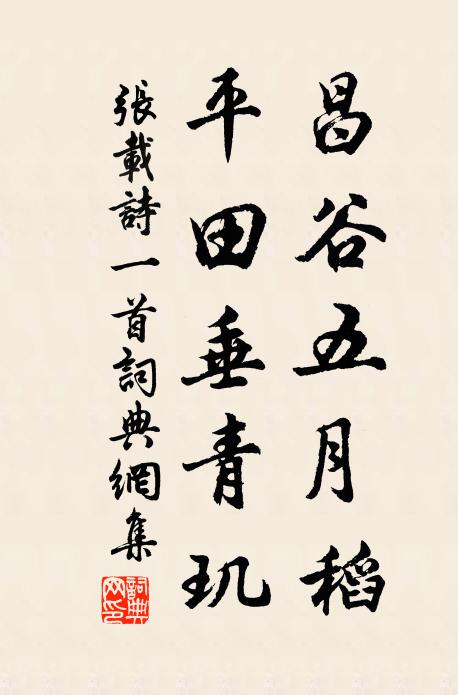 昌谷五月稻
平田垂青玑
張載詩一首詞典網集
詞典网印